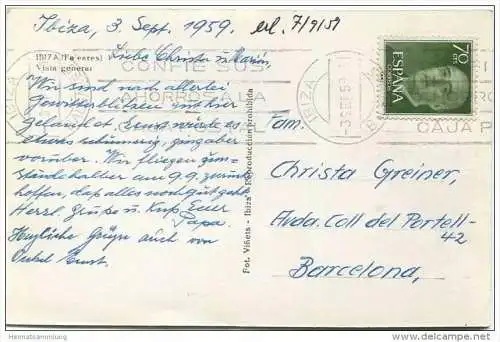 Ibiza, 3. Sept. 1959.
erl. 7/9/59
IBIZA (Baleares)
Vista general
Liebe Christa u. Mariön,
Wir sind nach allerlei
Gewitterblitzen hier
gelandet. Ernst wurde es
etwas schummerig, ging aber
vorüber. Wir fliegen um-
ständehalber am 9.9. zurück
hoffen, daß alles noch gut geht
Herzl. Grüße u. Kuß Euer
Papa.
Herzliche Grüße auch von
Onkel Ernst.
Fot. Viñets - Ibiza Reproducción prohibida
CONFIE SUS
AHORROS A LA
CAJA P
IBIZA
3 SET. 59
70 CTS
ESPAÑA
CORREOS
Fam.
Christa Greiner,
Avda. Coll del Portell-
42
Barcelona,
Heimatsammlung
delcampe.net